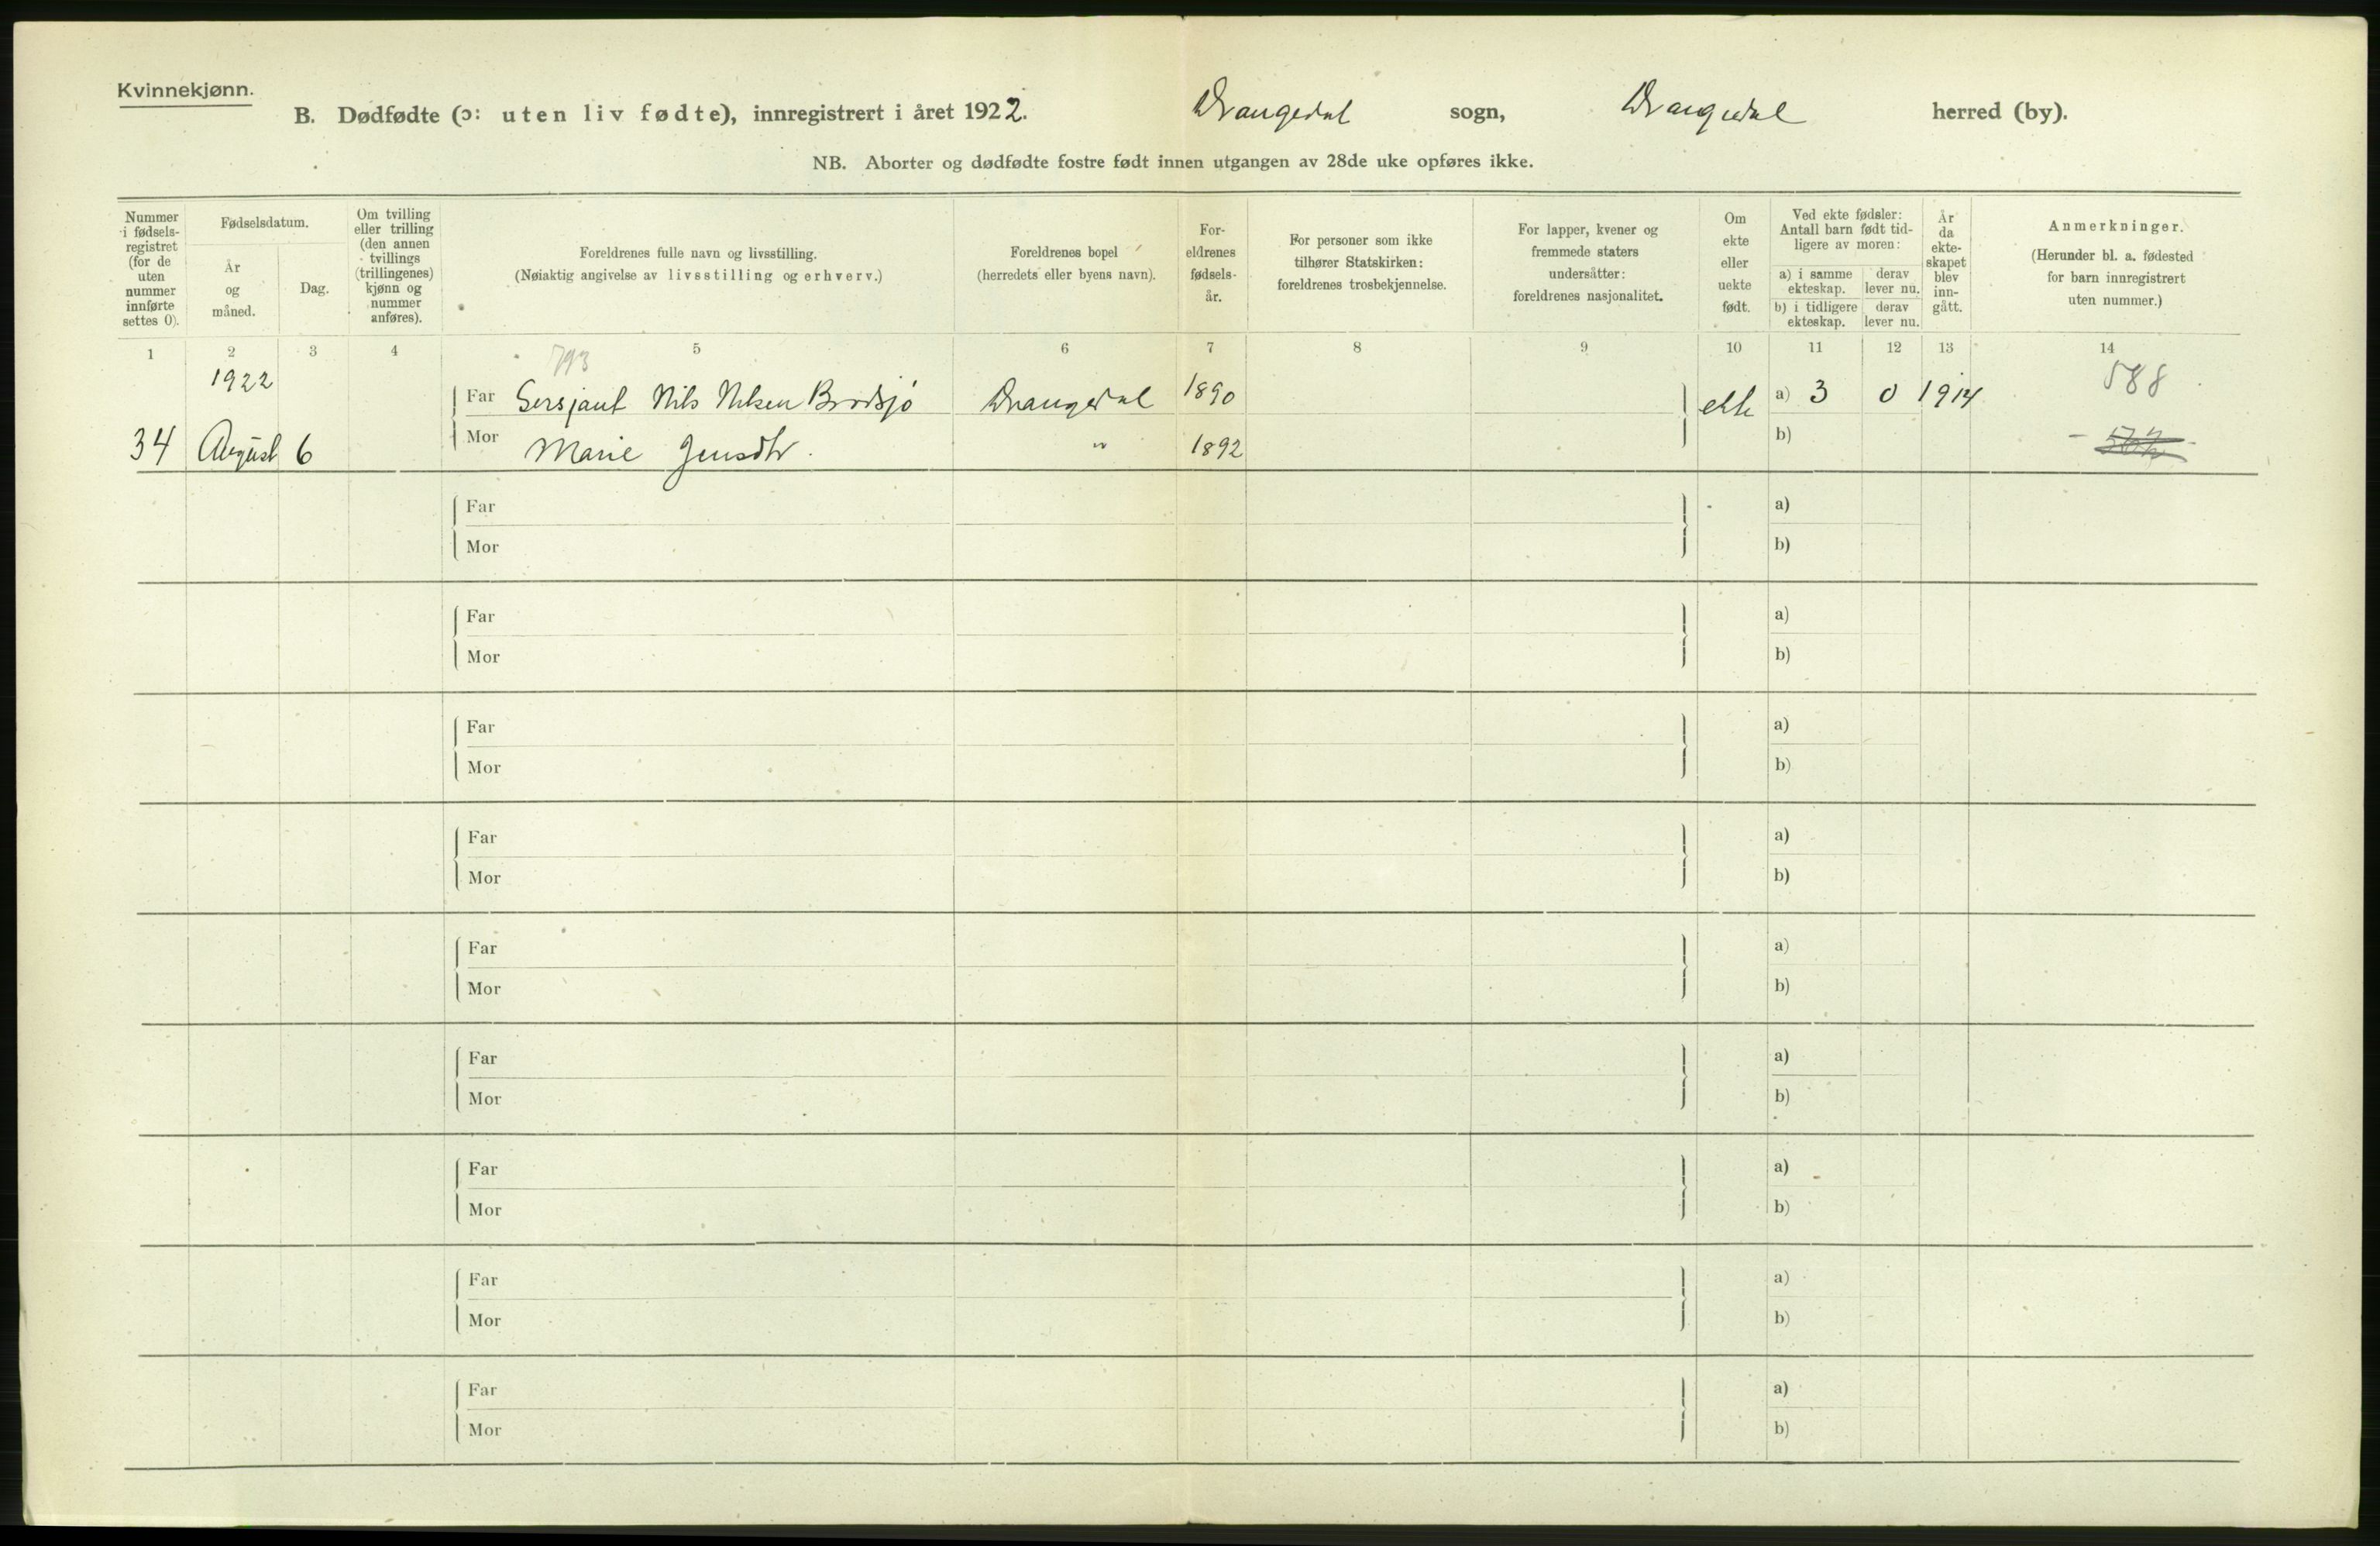 Kvinnekjønn.
B. Dødfødte (ɔ: uten liv fødte), innregistrert i året 1922. Drangedal sogn, Drangedal herred (by).
NB. Aborter og dødfødte fostre født innen utgangen av 28de uke opføres ikke.
Nummer i fødsels-registret (for de uten nummer innførte settes 0).
Fødselsdatum.
År og måned.
Dag.
Om tvilling eller trilling (den annen tvillings (trillingenes) kjønn og nummer anføres).
Foreldrenes fulle navn og livsstilling.
(Nøiaktig angivelse av livsstilling og erhverv.)
Foreldrenes bopel
(herredets eller byens navn).
For-eldrenes fødsels-år.
For personer som ikke tilhører Statskirken: foreldrenes trosbekjennelse.
For lapper, kvener og fremmede staters undersåtter: foreldrenes nasjonalitet.
Om ekte eller uekte født.
Ved ekte fødsler: Antall barn født tid-ligere av moren:
a) i samme ekteskap. derav lever nu.
b) i tidligere ekteskap. derav lever nu.
År da ekte-skapet blev inn-gått.
Anmerkninger.
(Herunder bl. a. fødested for barn innregistrert uten nummer.)
1 2 3 4 5 6 7 8 9 10 11 12 13 14
793
1922 588
Far Sersjant Nils Nilsen Brødsjø Drangedal 1890 ekte a) 3 0 1914
34 August 6 Mor Marie Jensdtr. " 1892 b)
Far a)
Mor b)
Far a)
Mor b)
Far a)
Mor b)
Far a)
Mor b)
Far a)
Mor b)
Far a)
Mor b)
Far a)
Mor b)
Far a)
Mor b)
Far a)
Mor b)